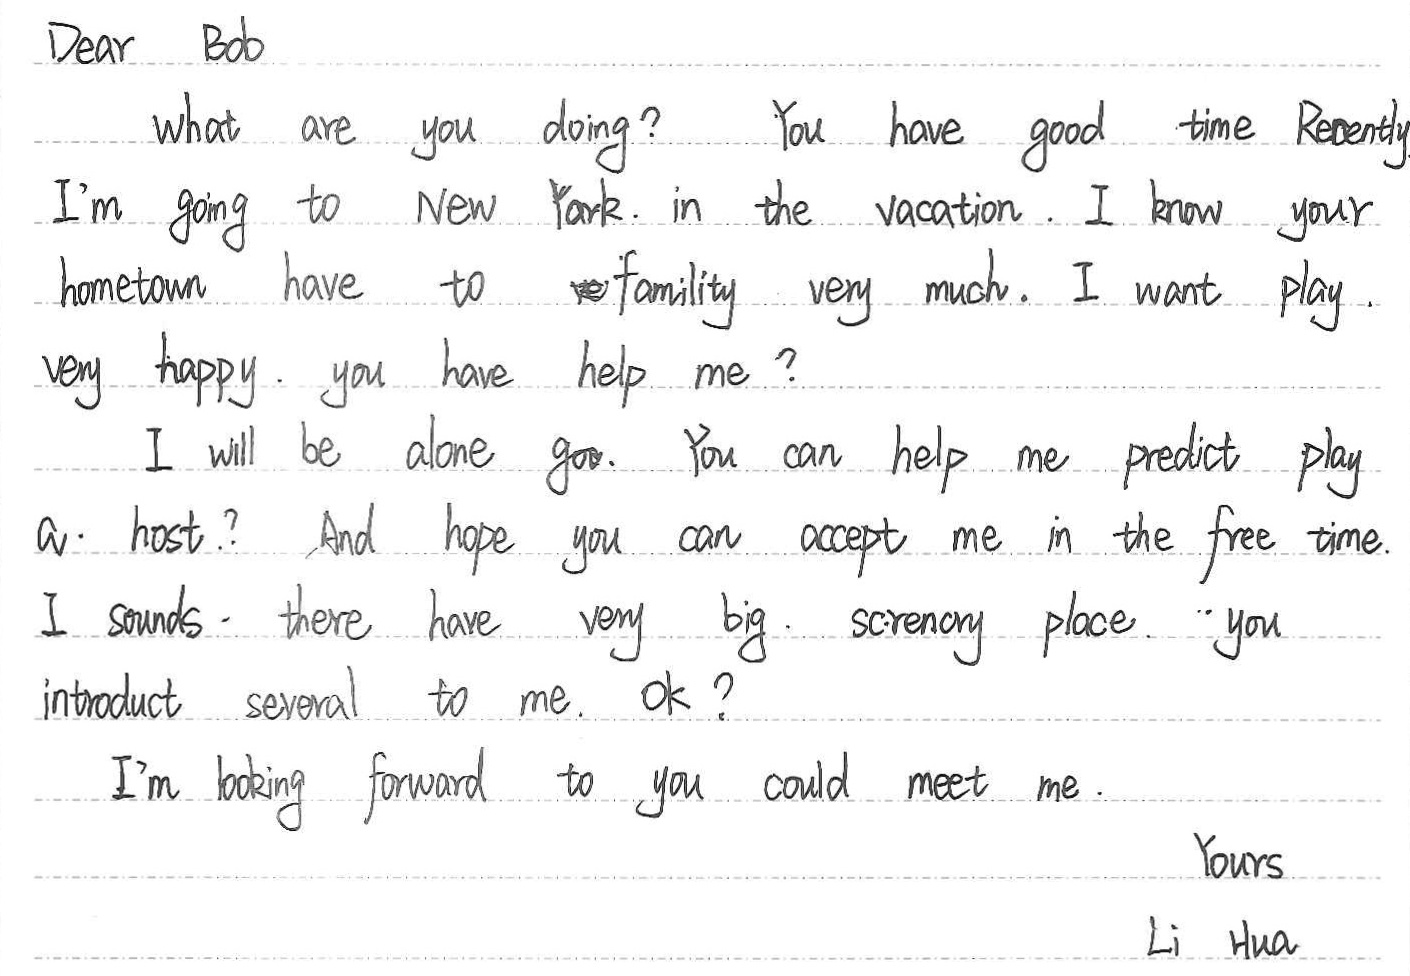 Dear Bob
what are you doing? You have good time Recently
I'm going to New York. in the vacation. I know your
hometown have to famility very much. I want play.
very happy. you have help me?
I will be alone goo. You can help me predict play
a. host? And hope you can accept me in the free time.
I sounds. there have very big. screnory place. you
introduct several to me. Ok?
I'm looking forward to you could meet me.
Yours
Li Hua